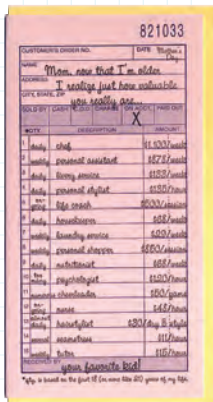 821033
CUSTOMER'S ORDER NO. DATE Mother's Day
NAME Mom, now that I'm older
ADDRESS I realize just how valuable
CITY, STATE, ZIP you really are...
SOLD BY CASH C.O.D. CHARGE ON ACCT. PAID OUT
X
QUOTE DESCRIPTION AMOUNT
1 daily chef $1,100/week
2 weekly personal assistant $875/week
3 daily livery service $133/week
4 daily personal stylist $135/hour
5 on-going life coach $500/session
6 daily housekeeper $68/week
7 weekly laundry service $29/week
8 weekly personal shopper $350/session
9 daily nutritionist $68/week
10 too many psychologist $120/hour
11 cheerleader $50/game
12 on-going nurse $48/hour
13 almost daily hairstylist $30/day & style
14 seamstress $11/hour
15 weekly tutor $15/hour
RECEIVED BY your favorite kid!
*qty. is based on the first 18 (or more like 21) years of my life.